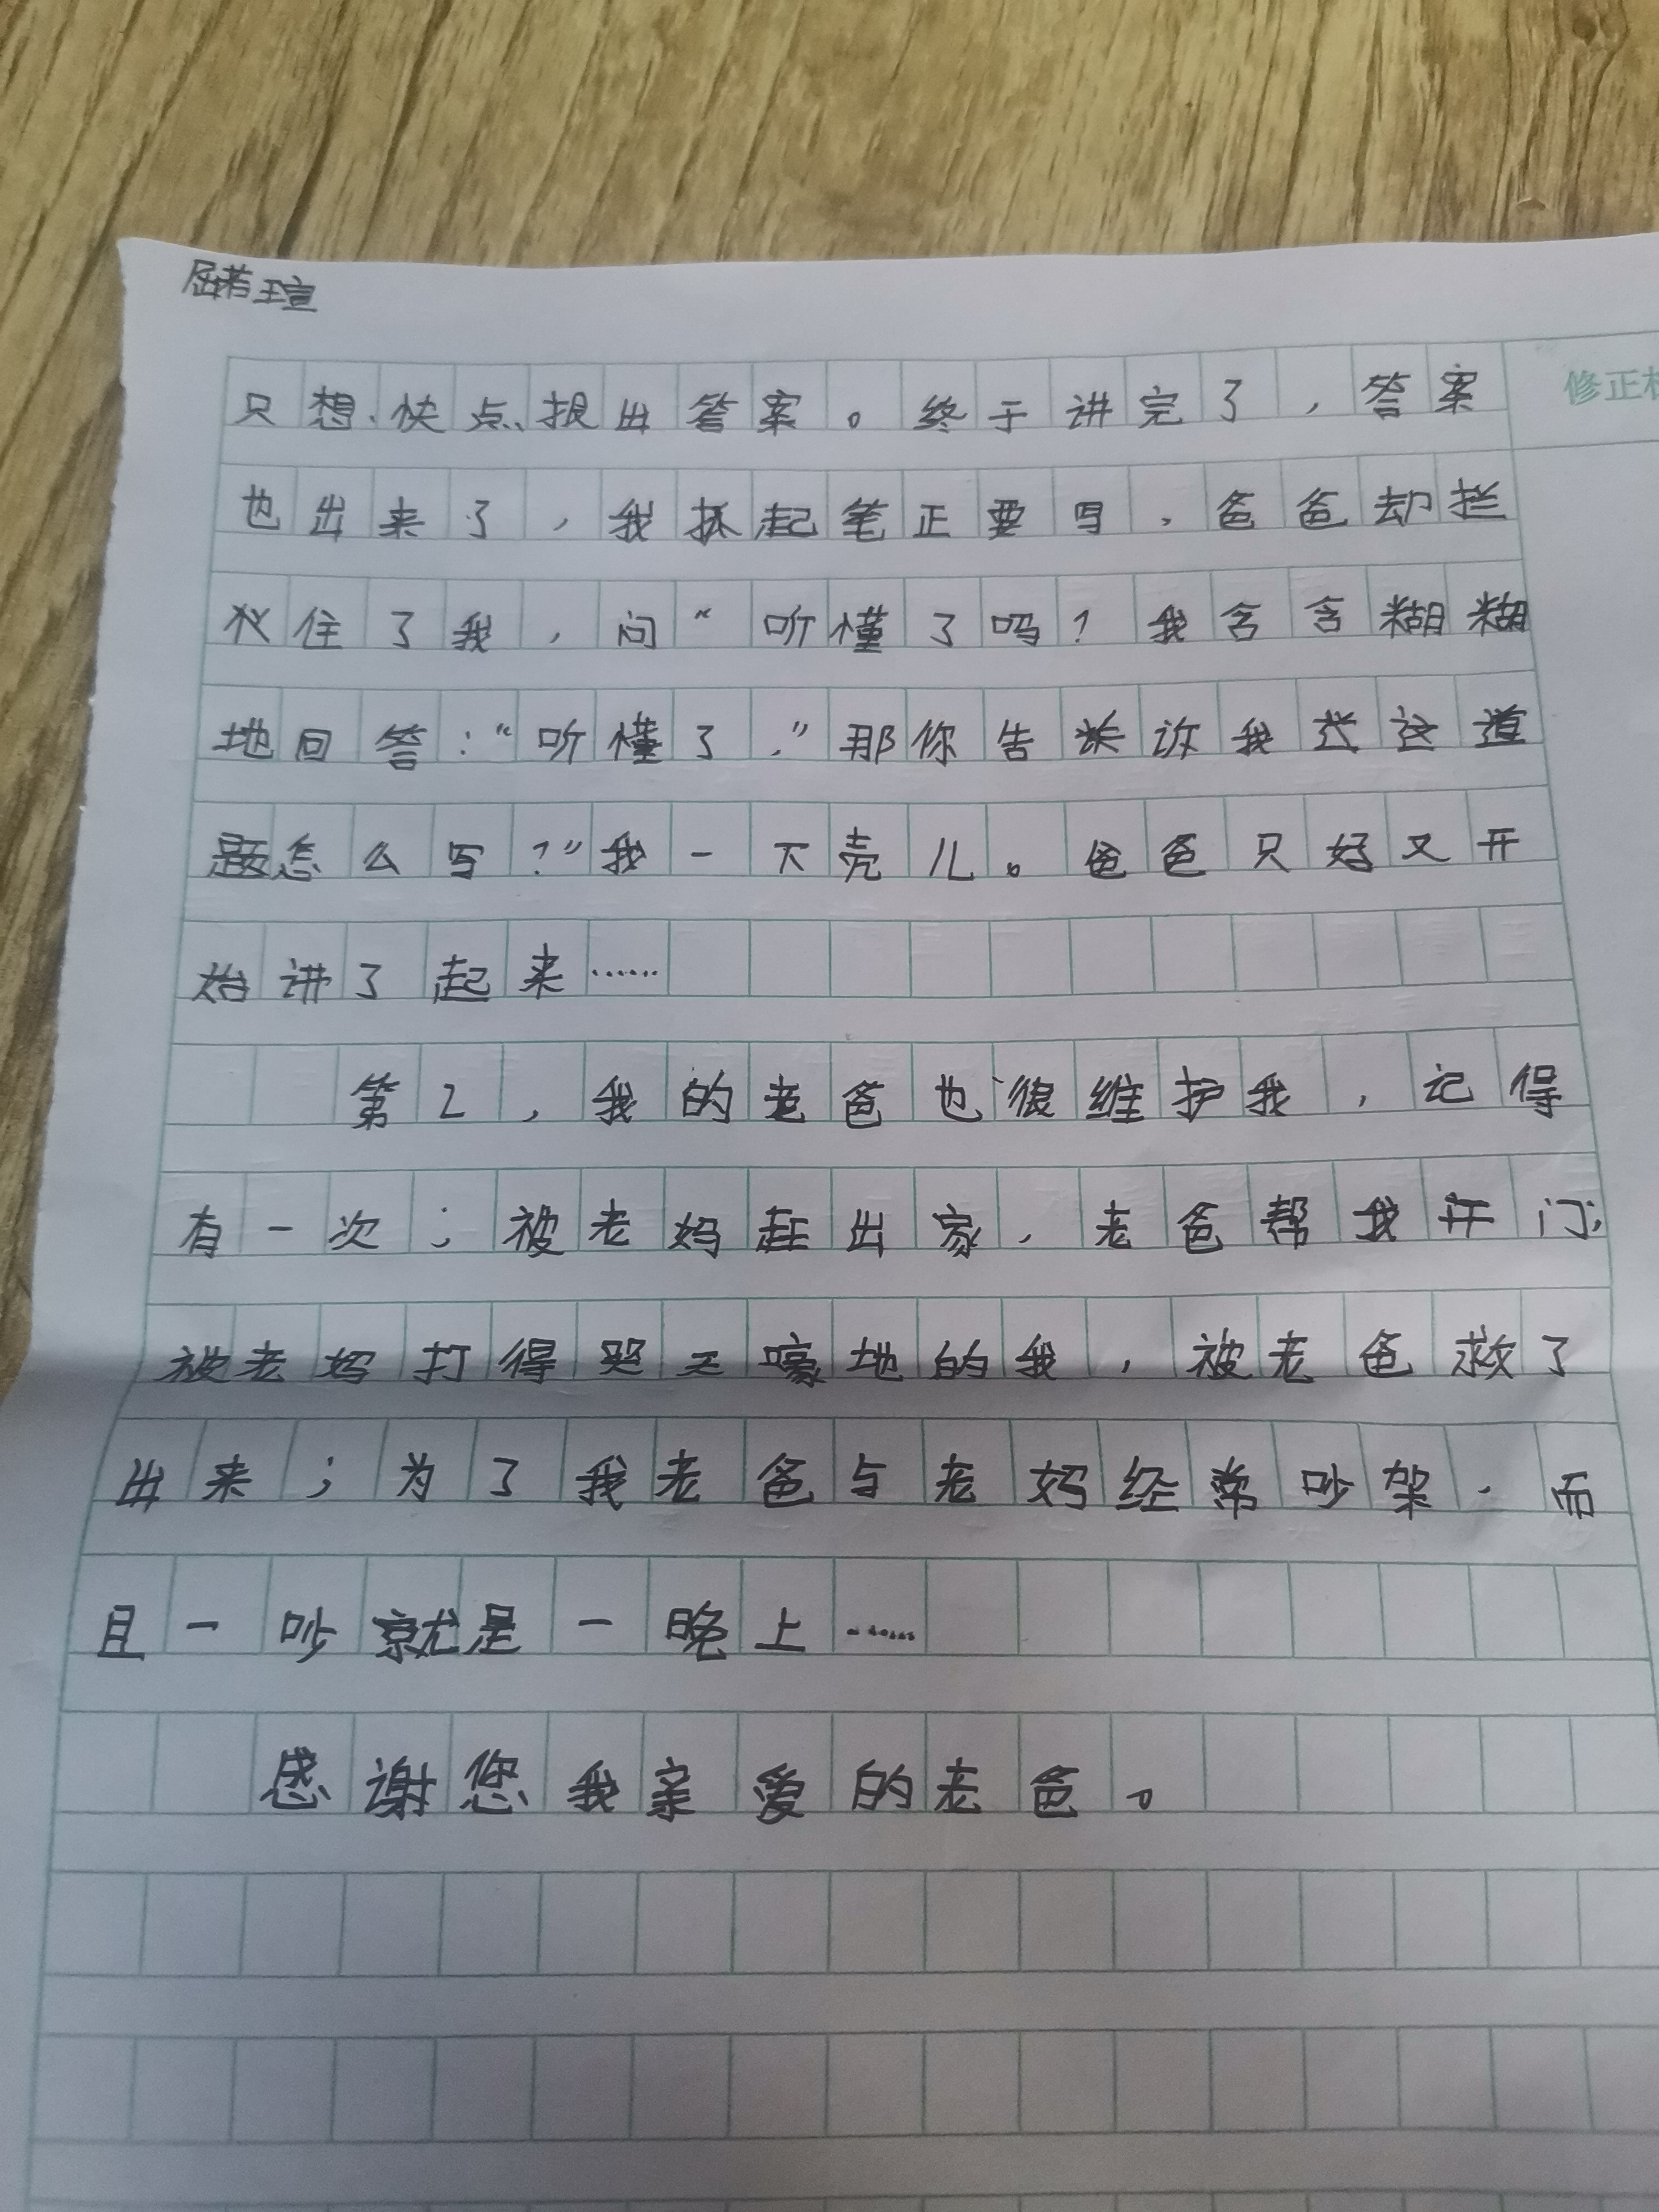 屈若瑄
修正
只想快点报出答案。终于讲完了，答案
也出来了，我抓起笔正要写，爸爸却拦
住了我，问“听懂了吗？我含含糊糊
地回答：“听懂了，”那你告诉我这道
题怎么写？”我一下壳儿。爸爸只好又开
始讲了起来……
第2，我的老爸也很维护我，记得
有一次；被老妈赶出家，老爸帮我开门；
被老妈打得哭天嚎地的我，被老爸救了
出来；为了我老爸与老妈经常吵架，而
且一吵就是一晚上……
感谢您我亲爱的老爸。